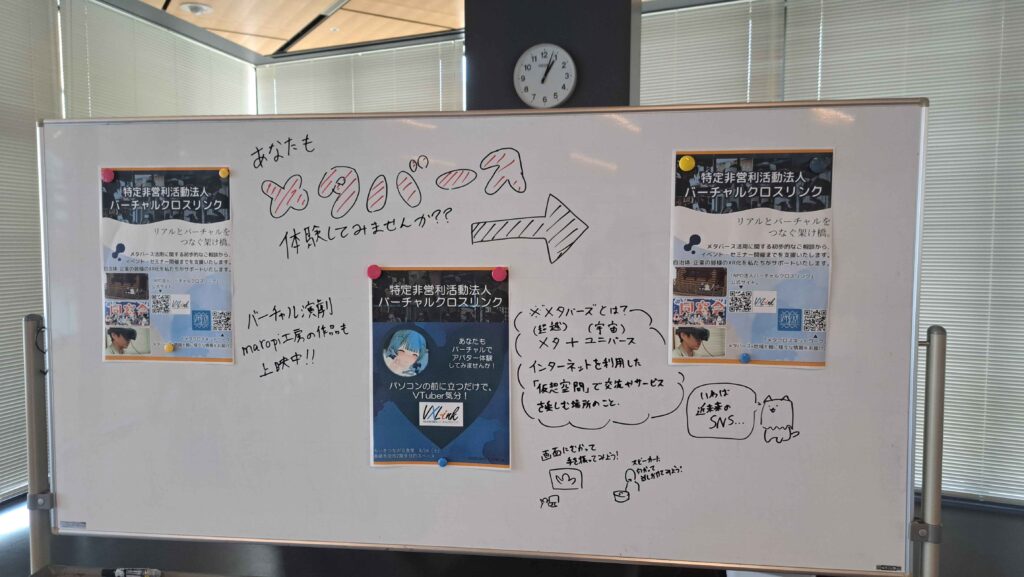 あなたも
メタバース
体験してみませんか??
バーチャル演劇
maropi工房の作品も
上映中!!
特定非営利活動法人
バーチャルクロスリンク
リアルとバーチャルを
つなぐ架け橋。
メタバース活用に関する初歩的なご相談から、
イベント・セミナー開催までを支援いたします。
自治体 企業の皆様のXR化を私たちがサポートいたします。
VXLink
特定非営利活動法人
バーチャルクロスリンク
あなたも
バーチャルで
アバター体験
してみませんか!
パソコンの前に立つだけで、
VTuber気分!
VXLink
※メタバースとは?
(超越) (宇宙)
メタ + ユニバース
インターネットを利用した
「仮想空間」で交流やサービス
を楽しむ場所のこと.
いわば
近未来の
SNS...
画面にむかって
手を振ってみよう!
スピーカーに
向かって
話しかけてみよう!
特定非営利活動法人
バーチャルクロスリンク
リアルとバーチャルを
つなぐ架け橋。
メタバース活用に関する初歩的なご相談から、
イベント・セミナー開催までを支援いたします。
自治体 企業の皆様のXR化を私たちがサポートいたします。
「NPO法人バーチャルクロスリンク」
公式サイト
VXLink
12
1
2
3
4
5
6
7
8
9
10
11